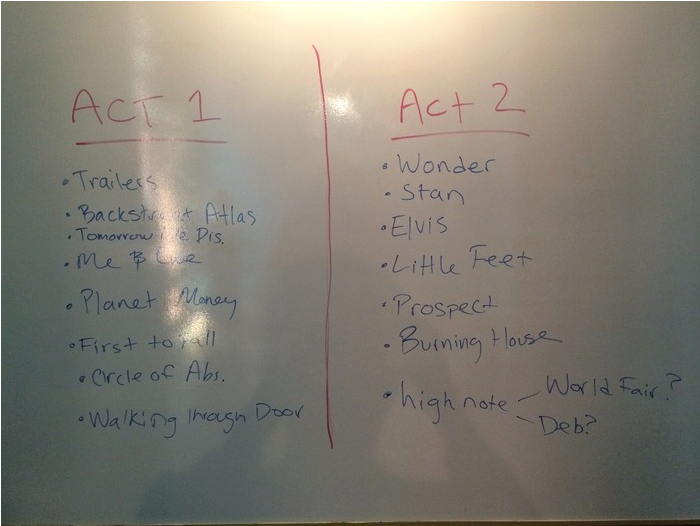 ACT 1
• Trailers
• Backstreet Atlas
• Tomorrow We Dis.
• Me &
• Planet Money
• First to fall
• Circle of Abs.
• Walking through Door
Act 2
• Wonder
• Stan
• Elvis
• Little Feet
• Prospect
• Burning House
• high note
World Fair?
Deb?